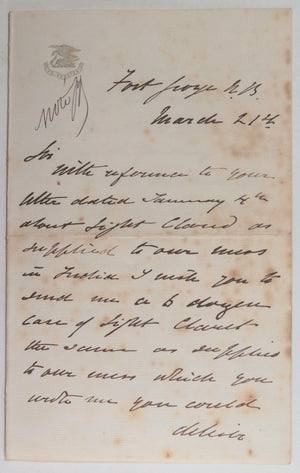 Fort George N.B.
March 21st
Sir
With reference to your
letter dated January 4th
about Light Claret as
supplied to our mess
in India I wish you to
send me a 6 dozen
case of Light Claret
the same as supplied
to our mess which you
wrote me you could
deliver